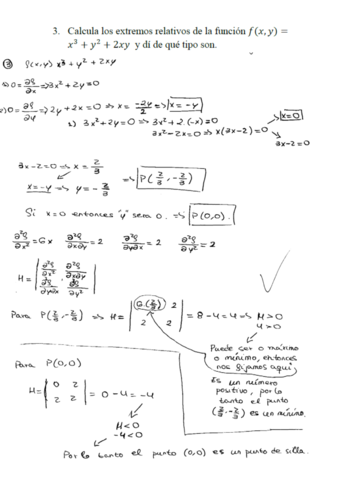 3. Calcula los extremos relativos de la función f(x, y) =
x³ + y² + 2xy y di de qué tipo son.
③ f(x,y) x³ + y² + 2xy
1) 0 = ∂f/∂x => 3x² + 2y = 0
2) 0 = ∂f/∂y => 2y + 2x = 0 => x = -2y/2 => x = -y
x=0
3x² + 2y = 0 => 3x² + 2·(-x) = 0
3x² - 2x = 0 => x(3x-2) = 0
3x-2=0
3x-2=0 => x = 2/3
x = -y => y = -2/3 => P(2/3, -2/3)
Si x=0 entonces "y" sera 0. => P(0,0).
∂²f/∂x² = 6x ∂²f/∂x∂y = 2 ∂²f/∂y∂x = 2 ∂²f/∂y² = 2
H = | ∂²f/∂x² ∂²f/∂x∂y |
| ∂²f/∂y∂x ∂²f/∂y² |
Para P(2/3, -2/3) => H = | 2 | = 8 - 4 = 4 => H > 0
| 2 2 | 4 > 0
Puede ser o máximo
o mínimo, entonces
nos fijamos aquí,
Es un número
positivo, por lo
tanto el punto
(2/3, -2/3) es un mínimo.
Para P(0,0)
H = | 0 2 | = 0 - 4 = -4
| 2 2 |
H < 0
-4 < 0
Por lo tanto el punto (0,0) es un punto de silla.